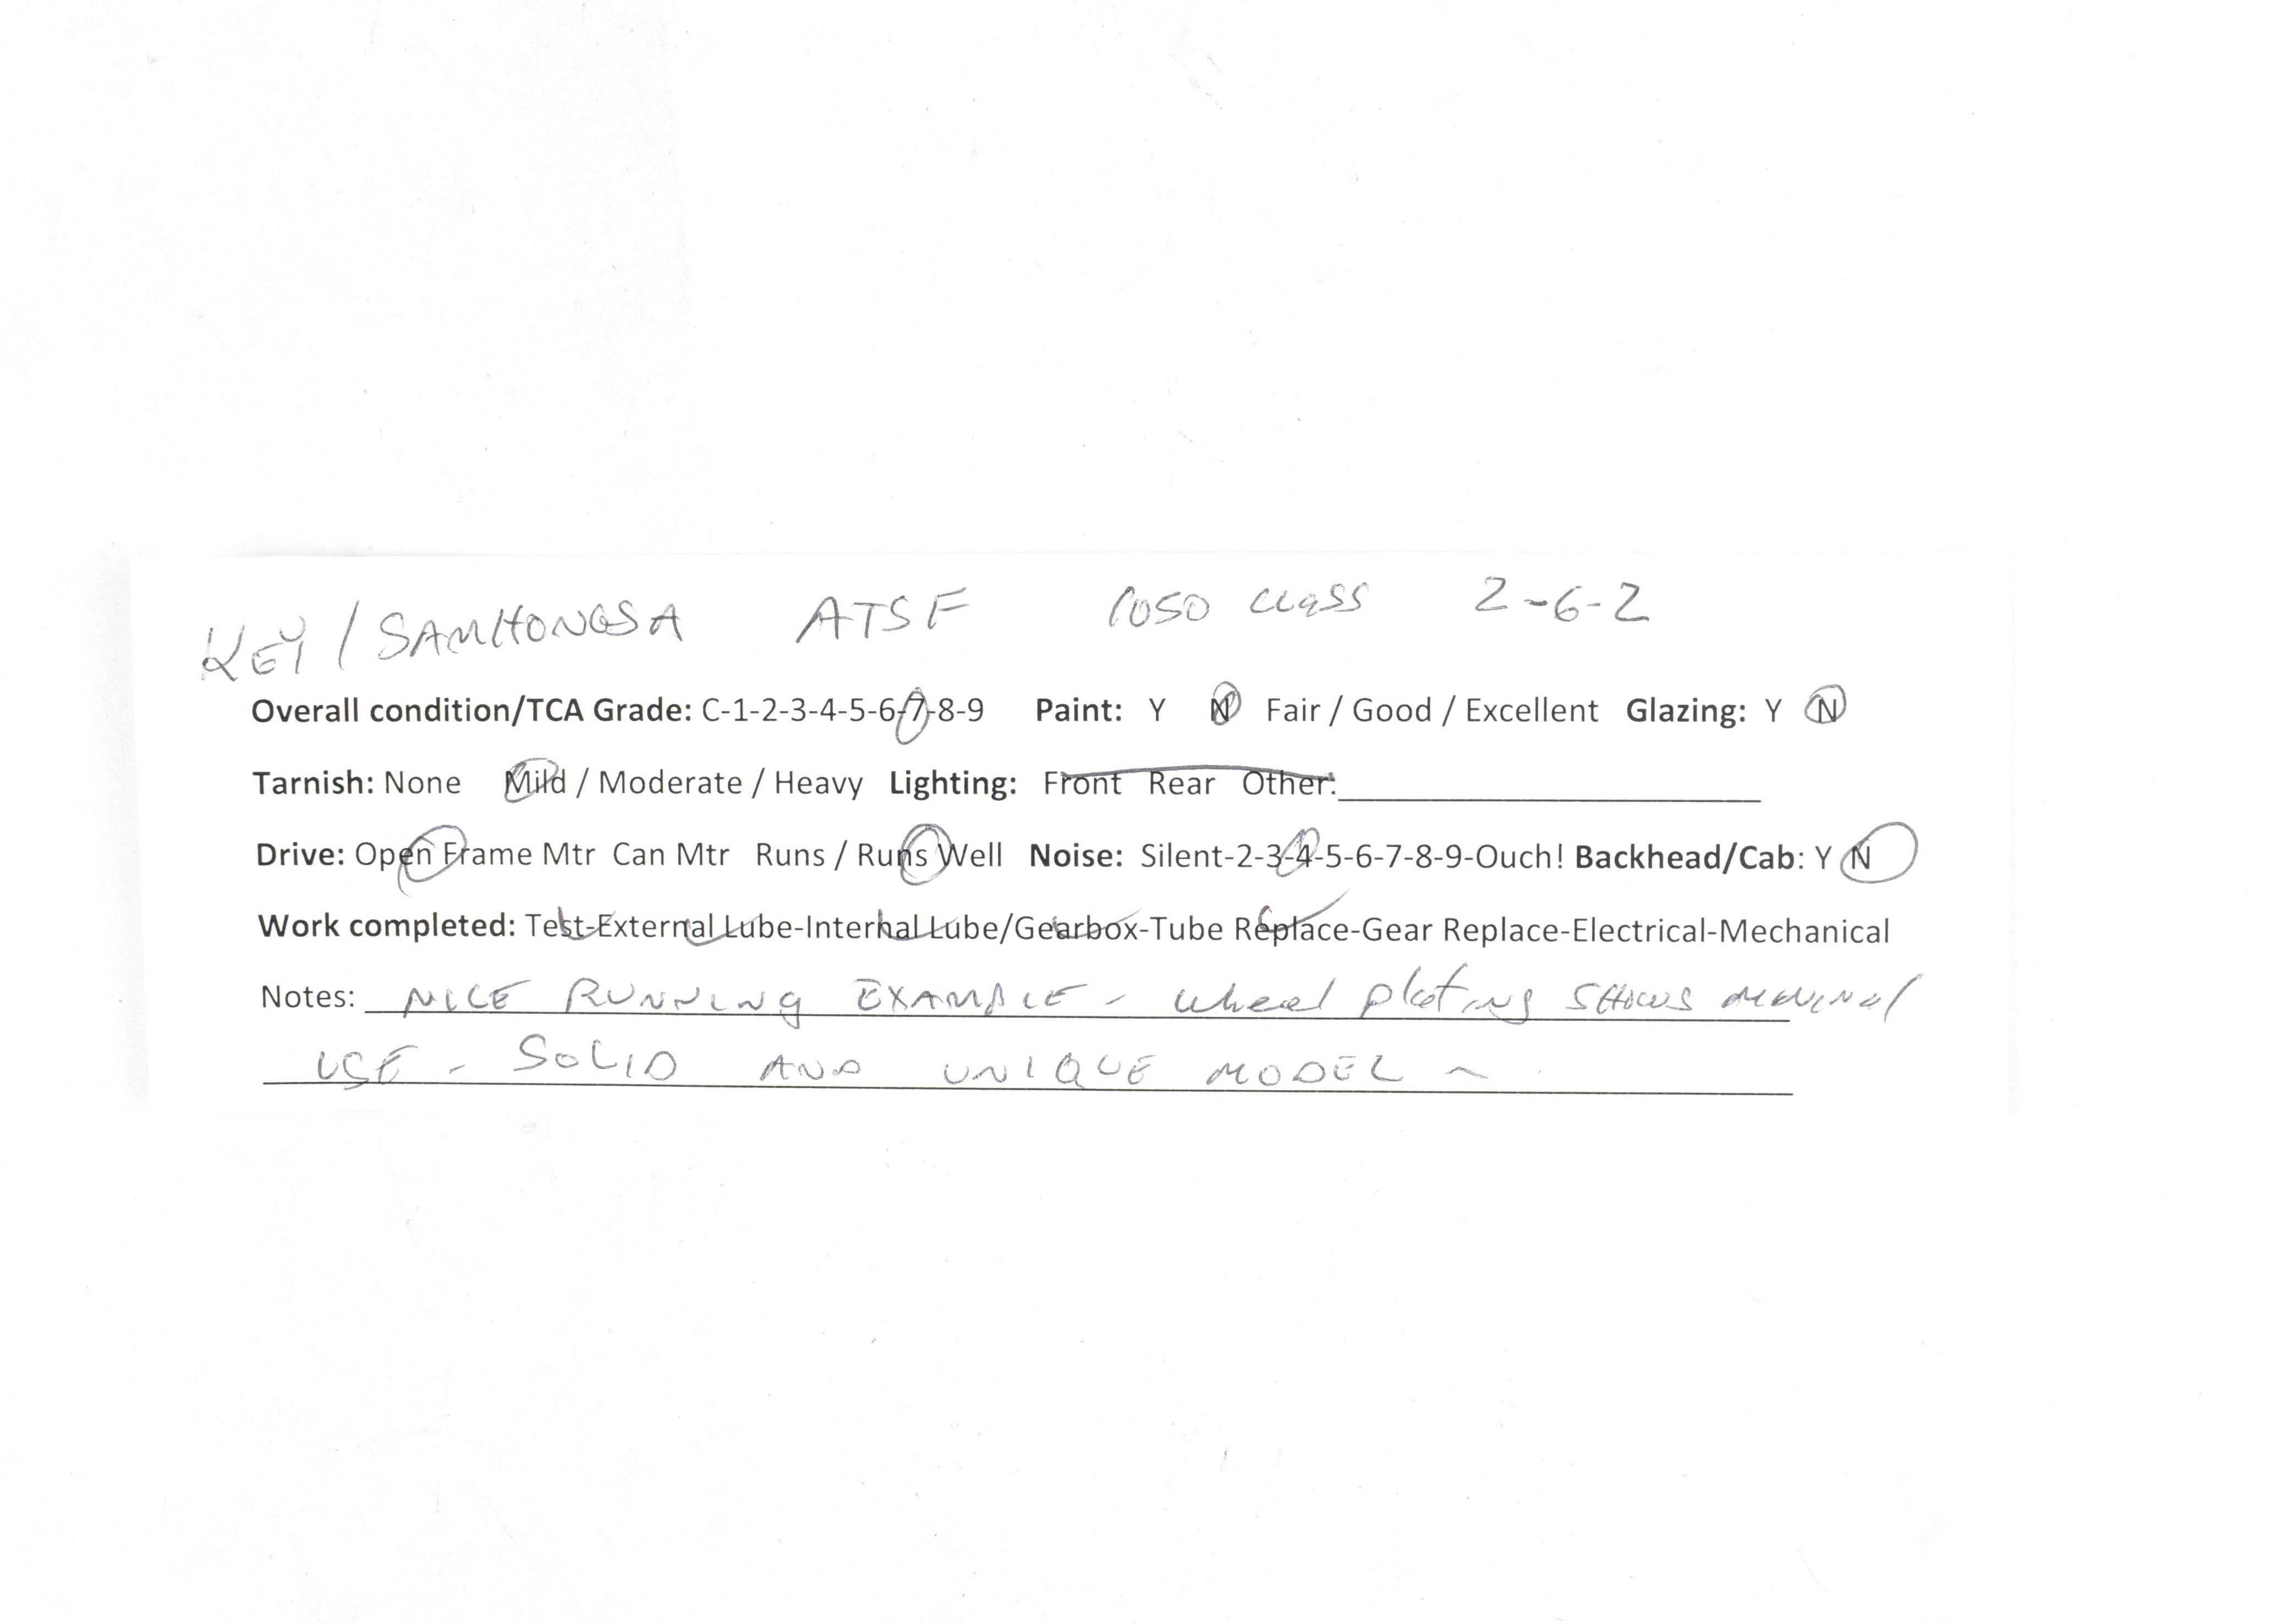 KEY / SAMHONGSA ATSF 1050 CLASS 2-6-2
Overall condition/TCA Grade: C-1-2-3-4-5-6-7-8-9 Paint: Y N Fair / Good / Excellent Glazing: Y N
Tarnish: None Mild / Moderate / Heavy Lighting: Front Rear Other:
Drive: Open Frame Mtr Can Mtr Runs / Runs Well Noise: Silent-2-3-4-5-6-7-8-9-Ouch! Backhead/Cab: Y N
Work completed: Test-External Lube-Internal Lube/Gearbox-Tube Replace-Gear Replace-Electrical-Mechanical
Notes: NICE RUNNING EXAMPLE - wheel plating SHOWS minimal
USE - SOLID AND UNIQUE MODEL ~